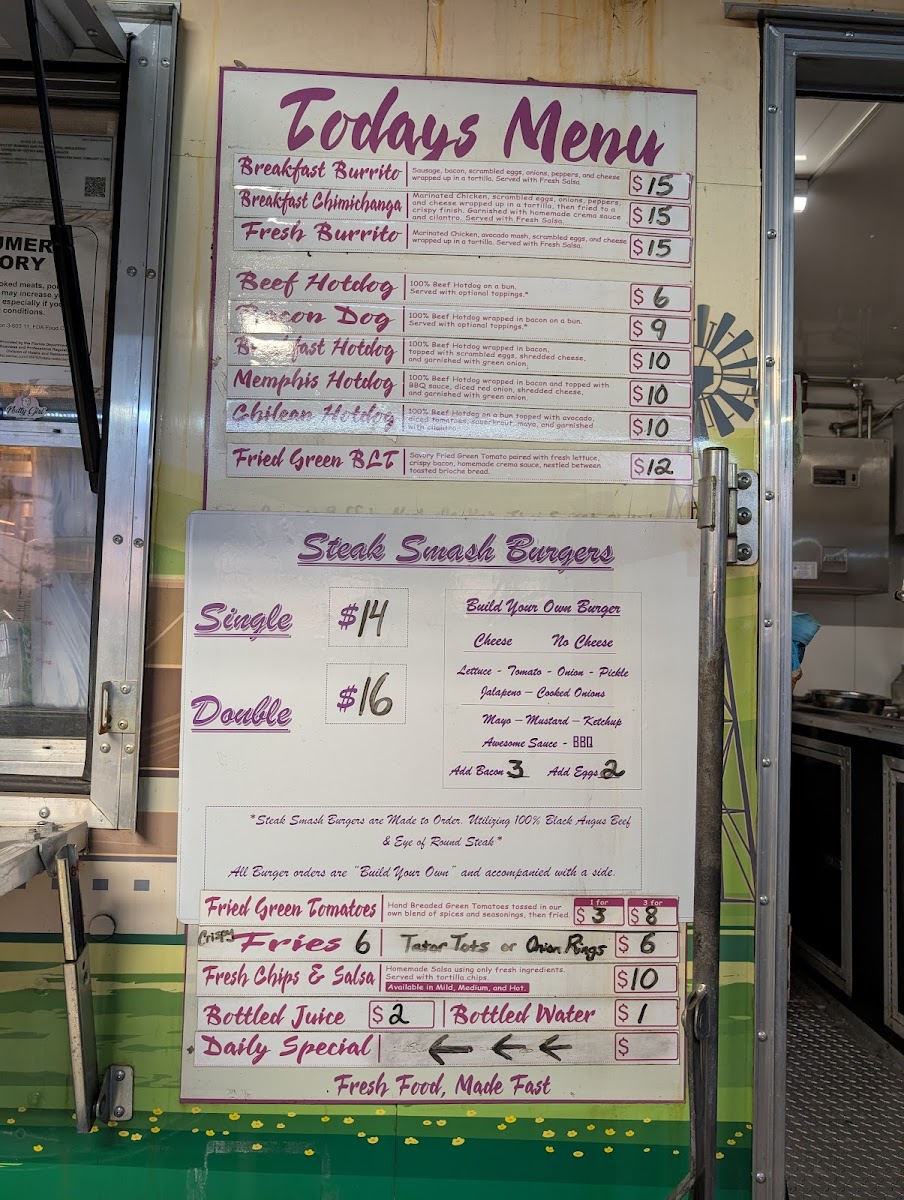 Todays Menu
Breakfast Burrito
Sausage, bacon, scrambled eggs, onions, peppers, and cheese
wrapped up in a tortilla. Served with Fresh Salsa.
$ 15
Breakfast Chimichanga
Marinated Chicken, scrambled eggs, onions, peppers,
and cheese wrapped up in a tortilla, then fried to a
crispy finish. Garnished with homemade crema sauce
and cilantro. Served with Fresh Salsa.
$ 15
Fresh Burrito
Marinated Chicken, avocado mash, scrambled eggs, and cheese
wrapped up in a tortilla. Served with Fresh Salsa.
$ 15
Beef Hotdog
100% Beef Hotdog on a bun.
Served with optional toppings.*
$ 6
Bacon Dog
100% Beef Hotdog wrapped in bacon on a bun.
Served with optional toppings.*
$ 9
Breakfast Hotdog
100% Beef Hotdog wrapped in bacon,
topped with scrambled eggs, shredded cheese,
and garnished with green onion.
$ 10
Memphis Hotdog
100% Beef Hotdog wrapped in bacon and topped with
BBQ sauce, diced red onion, shredded cheese,
and garnished with green onion.
$ 10
Chilean Hotdog
100% Beef Hotdog on a bun topped with avocado,
diced tomatoes, sauerkraut, mayo, and garnished
with cilantro.
$ 10
Fried Green BLT
Savory Fried Green Tomato paired with fresh lettuce,
crispy bacon, homemade crema sauce, nestled between
toasted brioche bread.
$ 12
Steak Smash Burgers
Single
$14
Double
$16
Build Your Own Burger
Cheese No Cheese
Lettuce - Tomato - Onion - Pickle
Jalapeno – Cooked Onions
Mayo – Mustard – Ketchup
Awesome Sauce - BBQ
Add Bacon 3 Add Eggs 2
*Steak Smash Burgers are Made to Order. Utilizing 100% Black Angus Beef
& Eye of Round Steak*
All Burger orders are "Build Your Own" and accompanied with a side.
Fried Green Tomatoes
Hand Breaded Green Tomatoes tossed in our
own blend of spices and seasonings, then fried.
1 for
$ 3
3 for
$ 8
Crispy Fries 6
Tator Tots or Onion Rings
$ 6
Fresh Chips & Salsa
Homemade Salsa using only fresh ingredients.
Served with tortilla chips.
Available in Mild, Medium, and Hot.
$10
Bottled Juice $ 2
Bottled Water $ 1
Daily Special
$
Fresh Food, Made Fast
UMER
ORY
conditions.
Nutty Girl